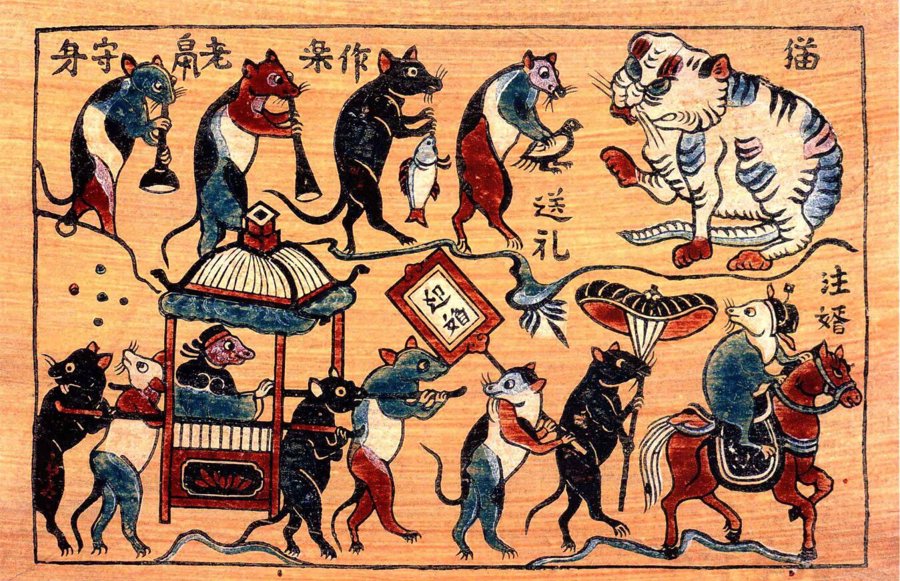 猫
作楽
老鼠
守身
送礼
注婿
婚